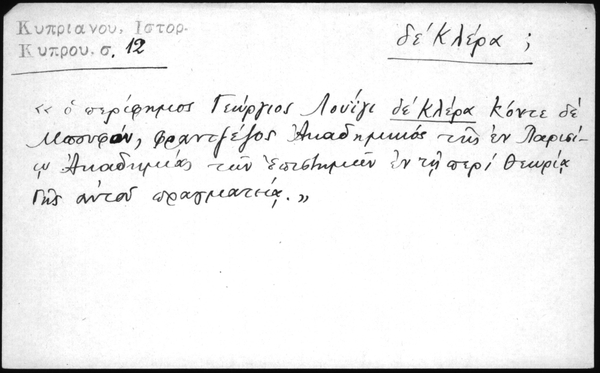 Κυπριανου, Ιστορ.
Κυπρου. σ. 12
δέ Κλέρα ;
« ὁ περίφημος Γεώργιος Λουΐγι δέ Κλέρα Κόντε δέ
Μπουφόν, φραντζέζος Ἀκαδημικός τῆς ἐν Παρισί-
ῳ Ἀκαδημίας τῶν Ἐπιστημῶν ἐν τῇ περί θεωρία
γῆς αὐτοῦ πραγματείᾳ. »